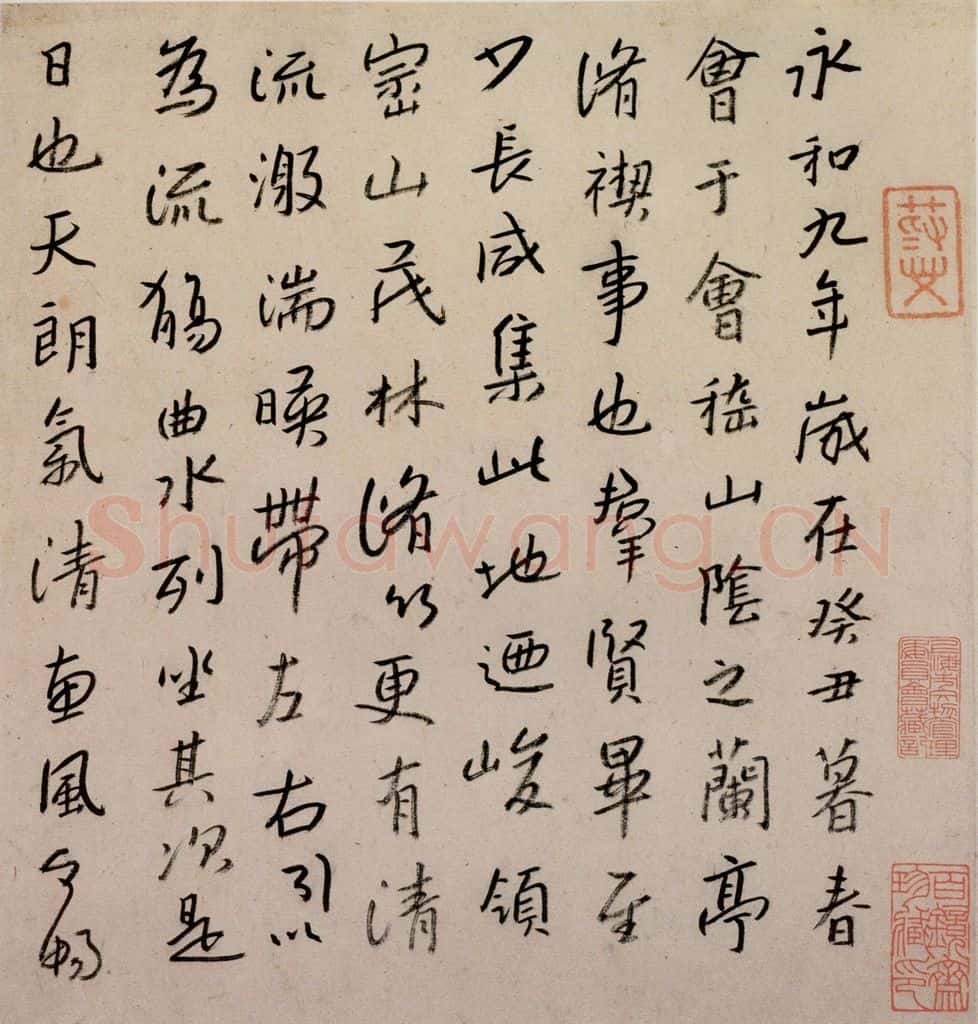 永和九年歲在癸丑暮春
會于會稽山陰之蘭亭
脩禊事也羣賢畢至
少長咸集此地迺峻領
崇山茂林脩竹更有清
流激湍暎帶左右引以
為流觴曲水列坐其次是
日也天朗氣清惠風和暢
Shufawang.CN